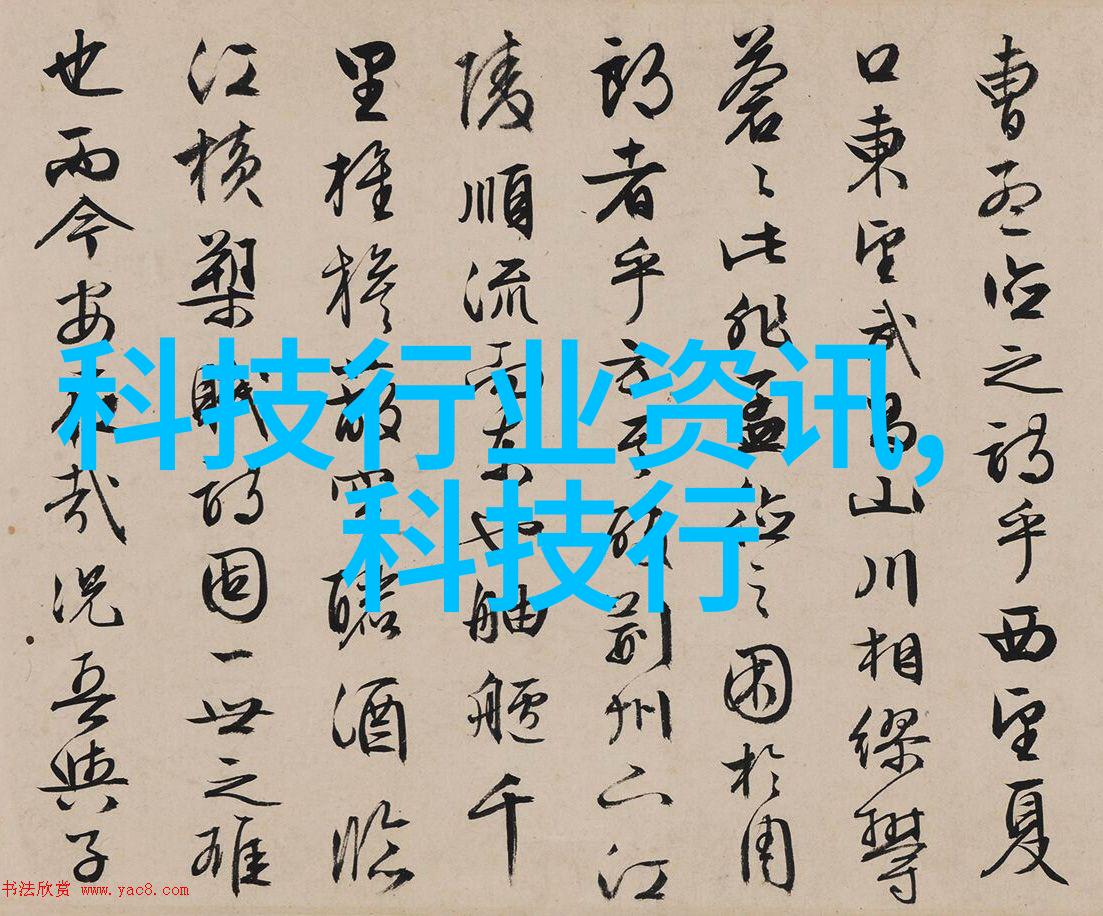 曹孟德之詩乎西望夏
口東望武昌山川相繆鬱
蒼〻此非孟德之困於周
郎者乎方其破荆州下江
陵順流而東也舳艫千
里旌旗蔽空釃酒臨
江橫槊賦詩固一世之雄
也而今安在哉況吾與子
科技行业资讯,
科技行
书法欣赏 www.yac8.com